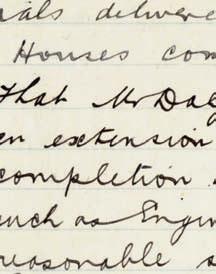 ials delivere
Houses com
That Mr Dal
en extension
completion
such as Engin
reasonable s